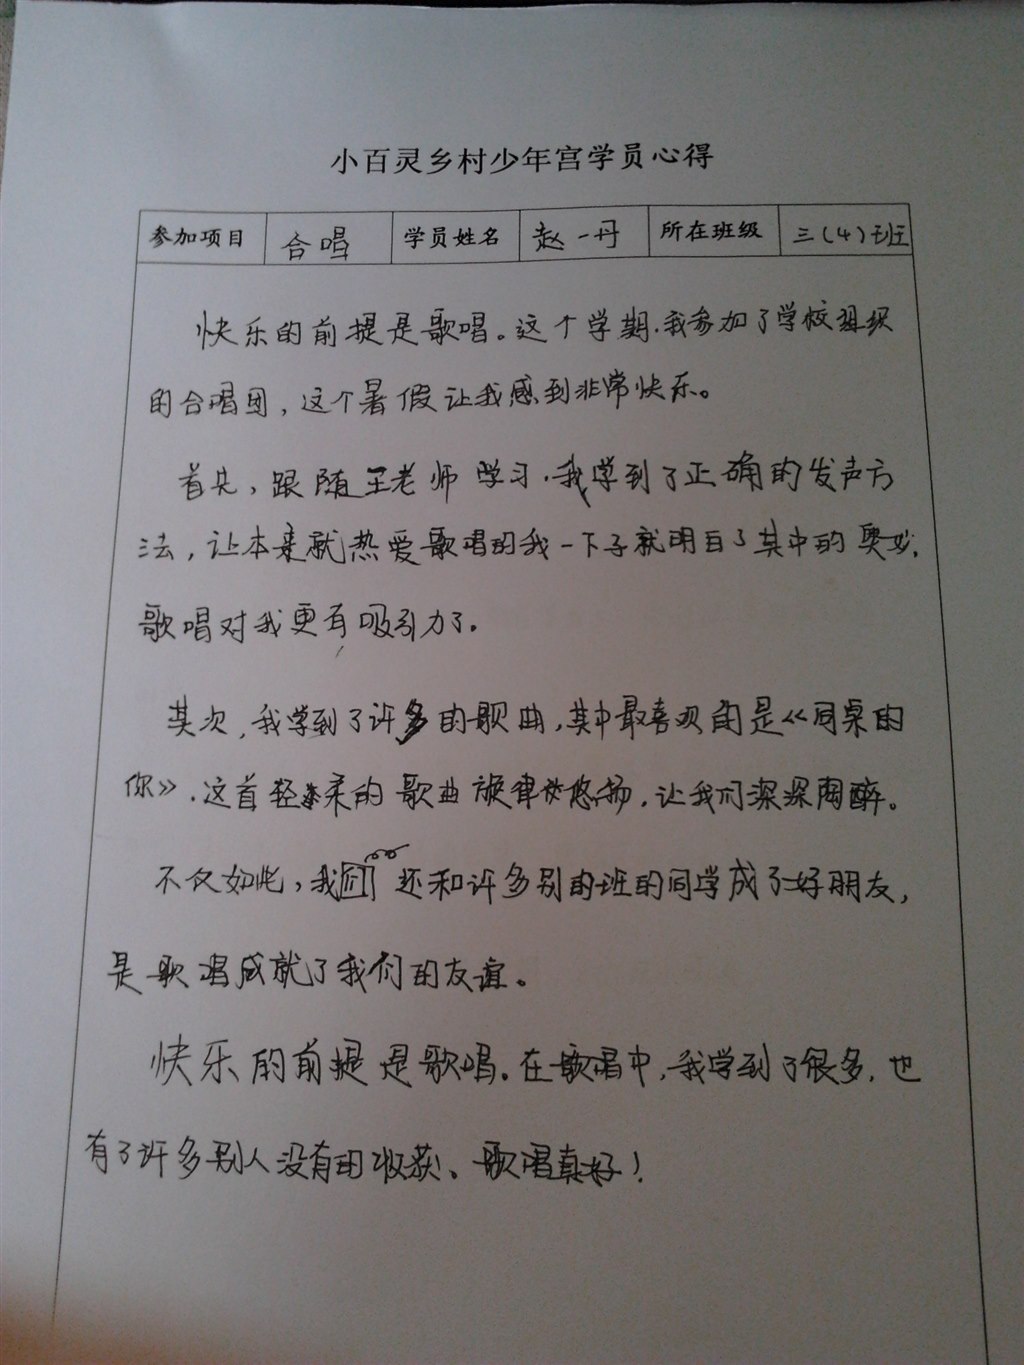 小百灵乡村少年宫学员心得
参加项目 合唱 学员姓名 赵一丹 所在班级 三（4）班
快乐的前提是歌唱。这个学期，我参加了学校组织
的合唱团，这个暑假让我感到非常快乐。
首先，跟随王老师学习，我学到了正确的发声方
法，让本来就热爱歌唱的我一下子就明白了其中的奥妙，
歌唱对我更有吸引力了。
其次，我学到了许多的歌曲，其中最喜欢的是《同桌的
你》，这首轻柔的歌曲旋律悠扬，让我们深深陶醉。
不仅如此，我还和许多别的班的同学成了好朋友，
是歌唱成就了我们的友谊。
快乐的前提是歌唱。在歌唱中，我学到了很多，也
有了许多别人没有的收获、歌唱真好！